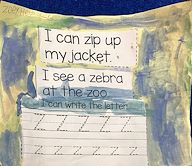 I can zip up
my jacket.
I see a zebra
at the zoo.
I can write the letter:
Z Z Z Z Z
Z Z Z Z Z